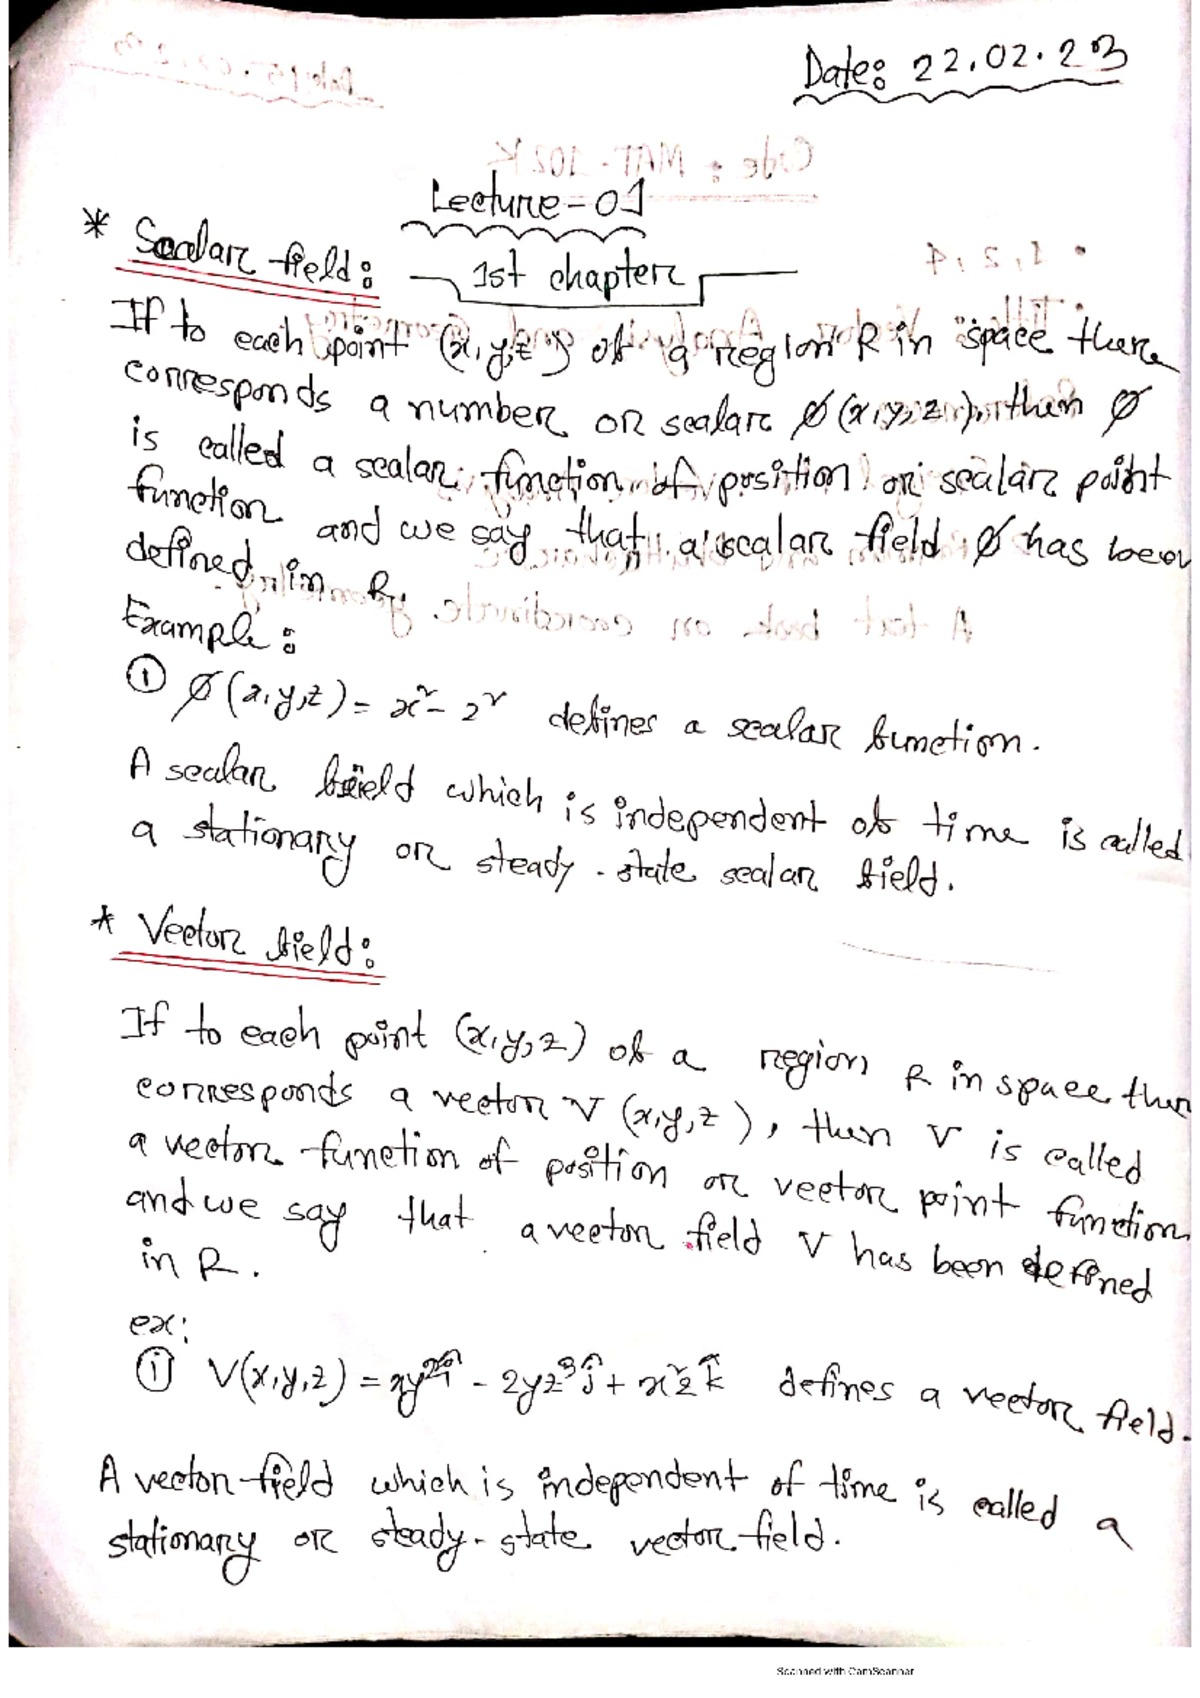 Date: 22.02.23
Lecture-01
1st chapter
* Scalar field:
If to each point (x,y,z) of a region R in space there
corresponds a number or scalar ø(x,y,z), then ø
is called a scalar function of position or scalar point
function and we say that a scalar field ø has been
defined in R.
Example:
① ø(x,y,z) = x² - z² defines a scalar function.
A scalar field which is independent of time is called
a stationary or steady-state scalar field.
* Vector field:
If to each point (x,y,z) of a region R in space ther
corresponds a vector V (x,y,z), then V is called
a vector function of position or vector point function
and we say that a vector field V has been defined
in R.
ex:
ⓘ V(x,y,z) = xy²î - 2yz³ĵ + x²z k̂ defines a vector field.
A vector field which is independent of time is called a
stationary or steady-state vector field.
Scanned with CamScanner